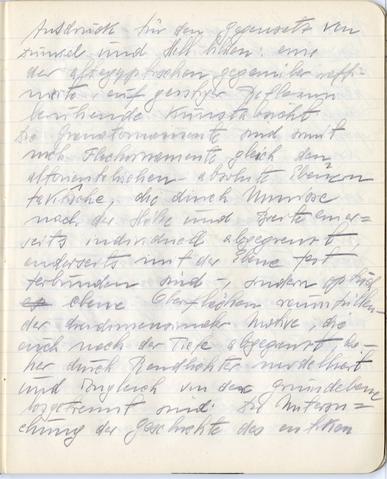 Ausdruck für den Gegensatz von
Dunkel und Hell bilden: eine
der altegyptischen gegenüber raffi-
nierte, auf geistiger Reflexion
beruhende Kunstabsicht
Die Granatornamente sind somit
nach Flachornamente gleich den
altorientalischen absolute Ebenen
taktische, die durch Umrisse
nach der Höhe und Breite einer-
seits individuell abgegrenzt,
anderseits mit der Ebene fest
verbunden sind -, sondern optisch
ebene Oberflächen raumfüllen-
der dreidimensionaler Motive, die
auch nach der Tiefe abgegrenzt, da-
her durch Randlichter modelliert
und zugleich von der Grundebene
losgetrennt sind. Die Untersu-
chung der Geschichte des antiken